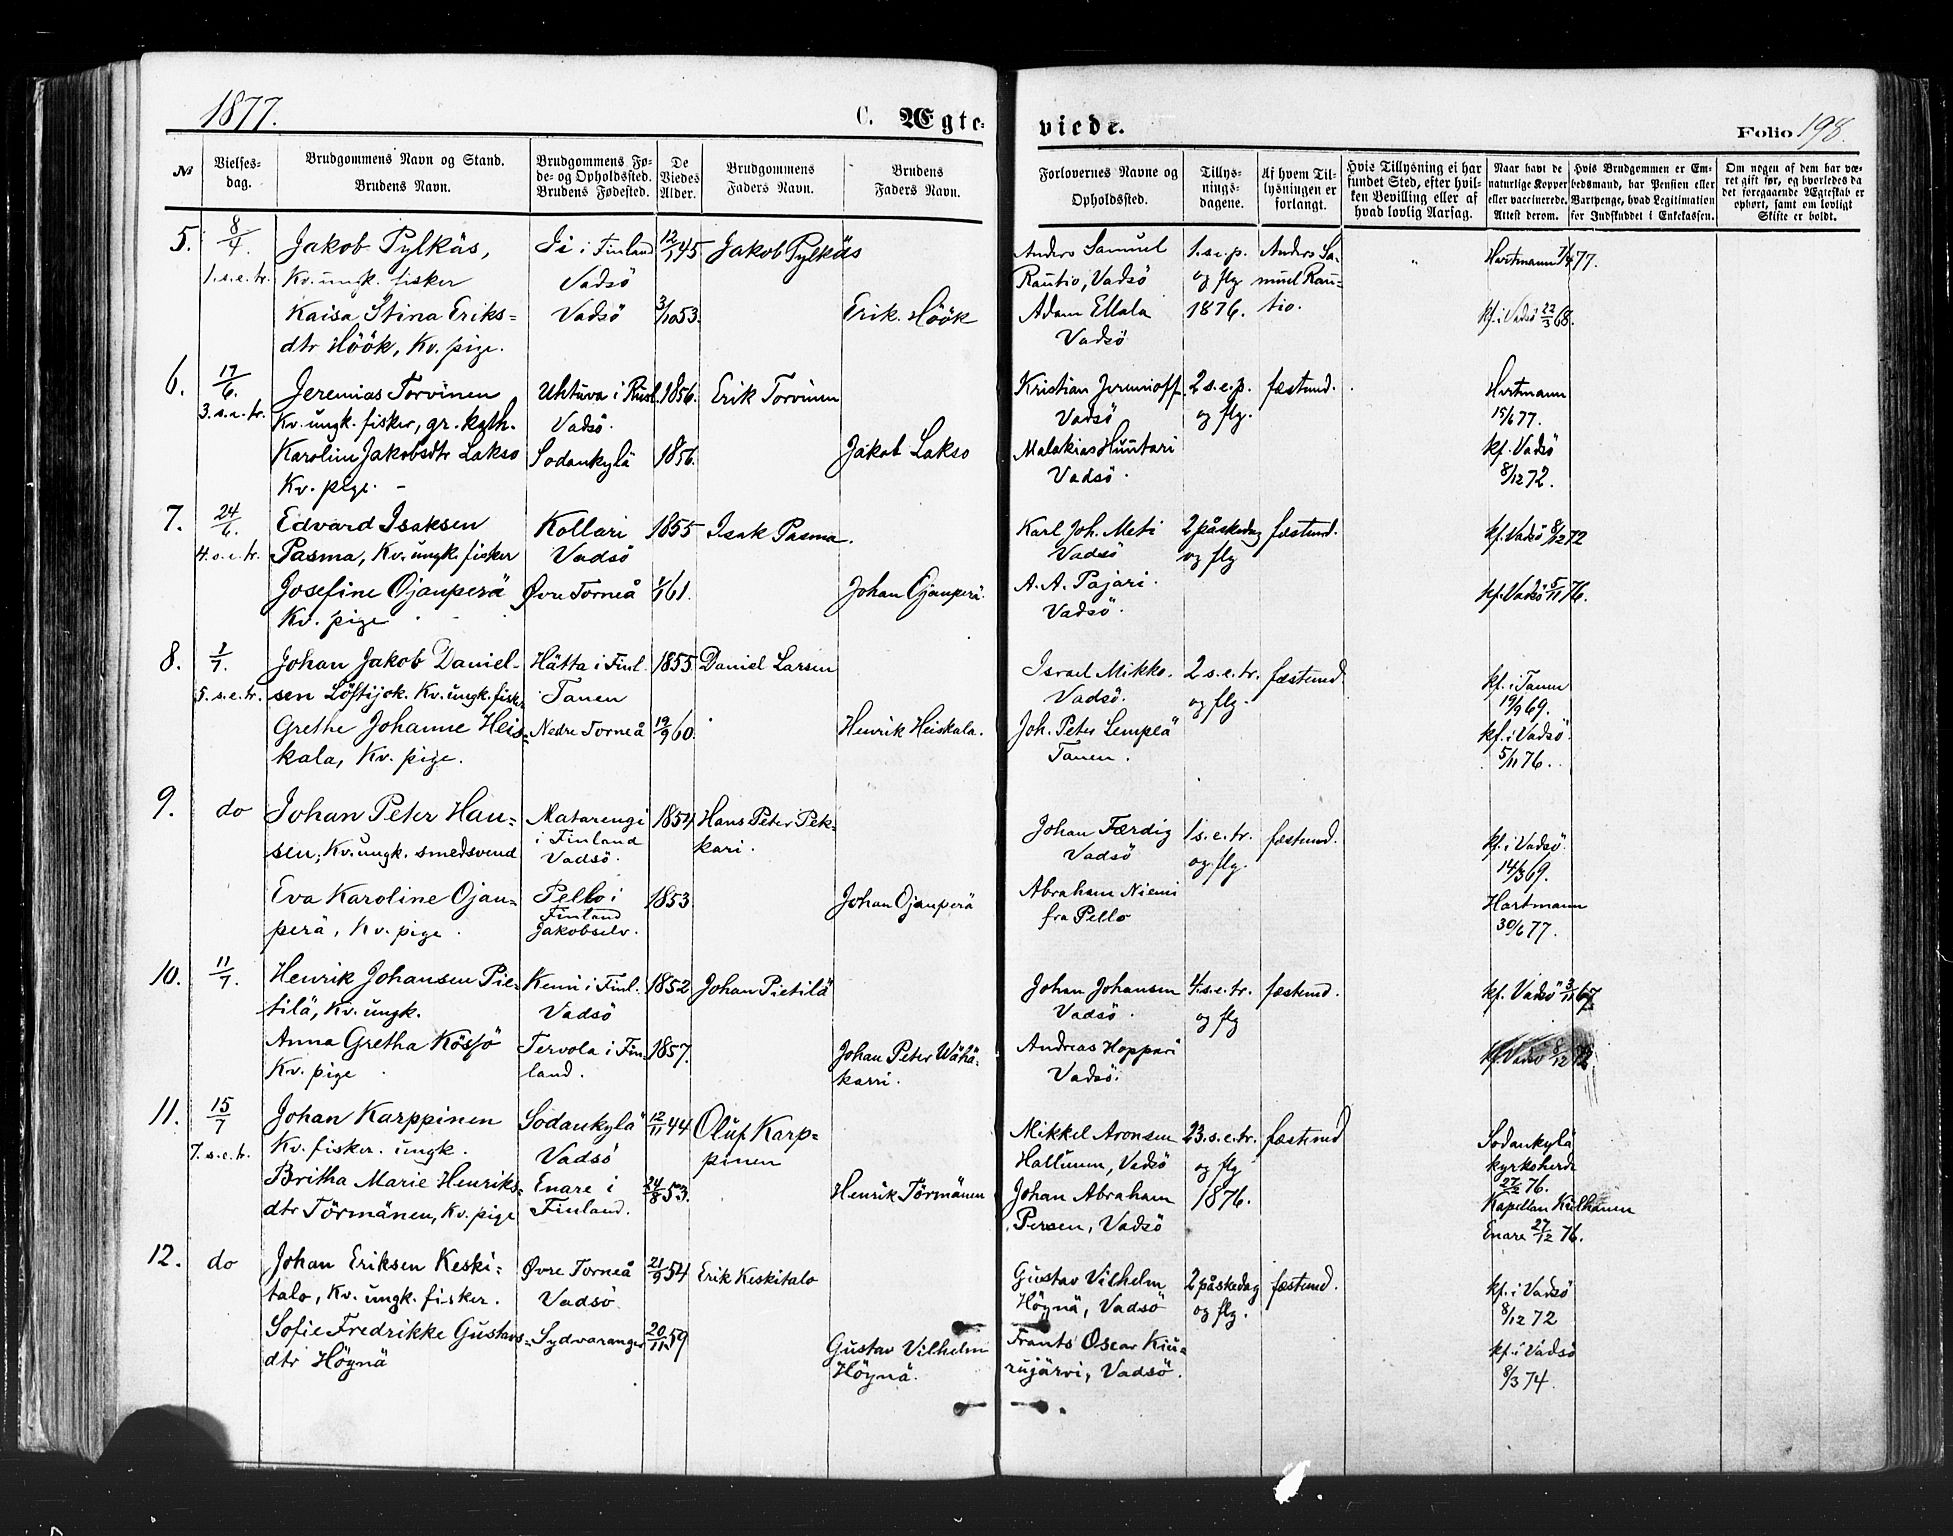 1877.
C. Ægte-
viede.
Folio 198.
No
Vielses-
dag.
Brudgommens Navn og Stand.
Brudens Navn.
Brudgommens Fø-
de- og Opholdssted.
Brudens Fødested.
De
Viedes
Alder.
Brudgommens
Faders Navn.
Brudens
Faders Navn.
Forlovernes Navne og
Opholdssted.
Tillys-
nings-
dagene.
Af hvem Til-
lysningen er
forlangt.
Hvis Tillysning ei har
fundet Sted, efter hvil-
ken Bevilling eller af
hvad lovlig Aarsag.
Naar havt de
naturlige Kopper
eller vaccinerede.
Attest derom.
Hvis Brudgommen er Em-
bedsmand, har Pension eller
Vartpenge, hvad Legitimation
for Indskuddet i Enkekassen.
Om nogen af dem har væ-
ret gift før, og hvorledes da
det foregaaende Ægteskab er
ophørt, samt om lovligt
Skifte er holdt.
5. 8/4 Jakob Pylkäs, Ii i Finland 12/1 45 Jakob Pylkäs Anders Samuel 1.s.e.p. Anders Sa- " Hartmann 7/4 77.
1.s.e.tr. Kv. ungk. fisker Vadsö Rautio, Vadsö og flg muel Rau-
Kaisa Stina Eriks= Vadsö 3/10 53. Erik Höök Adam Ellala 1876. tio. kf. i Vadsö 22/3 68.
dtr Höök, Kv. pige. Vadsö
6. 17/6. Jeremias Torvinen Uhtuva i Rusl. 1856. Erik Torvinen Kristian Jeremioff. 2 s.e.p. fæstmd. Hartmann
3.s.e.tr. Kv. ungk. fisker, gr. kath. Vadsö. Vadsö og flg. 15/6 77.
Karolin Jakobsdtr Lakso Sodankylä 1856. Jakob Lakso Malakias Huntari kf. Vadsö
Kv. pige. Vadsö. 8/12 72.
7. 24/6. Edvard Isaksen Kollari 1855 Isak Pasma. Karl Joh. Meti 2 påskedag fæstmd. kf. Vadsö 8/12 72
4.s.e.tr. Pasma, Kv. ungk. fisker Vadsö Vadsö og flg
Josefine Ojanperä Øvre Torneå 1/1 61. Johan Ojanperä. A. A. Pajari. kf. Vadsö 5/11 76.
Kv. pige Vadsö.
8. 1/7. Johan Jakob Daniel- Hätta i Finl. 1855 Daniel Larsen Israel Mikko. 2 s.e.tr. fæstmd. kf. i Tanen
5.s.e.tr. sen Löftijok. Kv. ungk. fisker Tanen Vadsö. og flg. 19/9 69.
Grethe Johanne Heis= Nedre Torneå 19/9 60. Henrik Heiskala. Joh. Peter Lempeä kf. i Vadsö.
kala, Kv. pige. Tanen. 5/11 76.
9. do Johan Peter Han= Matarengi 1854 Hans Peter Pek= Johan Færdig 1 s.e.tr. fæstmd. kf. i Vadsö.
sen, Kv. ungk. smedsvend i Finland kari. Vadsö og flg. 14/3 69.
Vadsö.
Eva Karoline Ojan= Pello i 1853 Johan Ojanperä Abraham Niemi Hartmann
perä, Kv. pige. Finland fra Pello 30/6 77.
Jakobselv.
10. 11/7. Henrik Johansen Pie= Kemi i Finl. 1852 Johan Pietilä Johan Johansen 4.s.e.tr. fæstmd. kf. Vadsö 3/11 67
tilä, Kv. ungk. Vadsö Vadsö. og flg
Anna Gretha Kössö Tervola i Fin= 1857. Johan Peter Wähä= Andreas Hoppari kf. Vadsö 8/12 72
Kv. pige land. karri. Vadsö.
11. 15/7 Johan Karppinen Sodankylä 12/11 44 Oluf Karp= Mikkel Aronsen 23.s.e.tr. fæstmd Sodankylä
7.s.e.tr. Kv. fisker. ungk. Vadsö pinen Hallunen, Vadsö og flg kyrkoherde
27/2 76.
Britha Marie Henriks= Enare i 24/8 53. Henrik Törmänen Johan Abraham 1876. Kapellan
dtr Törmänen, Kv. pige Finland. Persen, Vadsö Enare 27/12 76.
12. do Johan Eriksen Keski= Øvre Torneå 21/9 54 Erik Keskitalo Gustav Vilhelm 2 påskedag fæstmd. kf. i Vadsö
talo, Kv. ungk. fisker. Vadsö Höynä, Vadsö og flg. 8/12 72
Sofie Fredrikke Gustavs= Sydvaranger 20/11 59 Gustav Vilhelm Frants Oscar Kiu= kf. i Vadsö
dtr Höynä Höynä. rujärvi, Vadsö. 8/3 74.